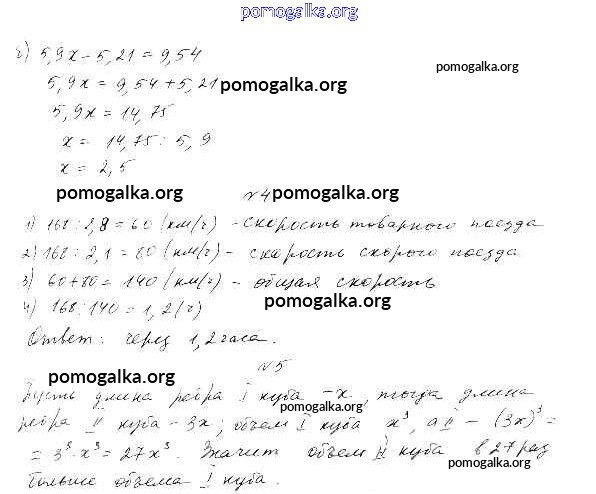 pomogalka.org
г) 5,9x − 5,21 = 9,54
pomogalka.org
5,9x = 9,54 + 5,21 pomogalka.org
5,9x = 14,75
x = 14,75 : 5,9
x = 2,5
pomogalka.org №4 pomogalka.org
1) 168 : 2,8 = 60 (км/ч) - скорость товарного поезда
2) 168 : 2,1 = 80 (км/ч) - скорость скорого поезда
3) 60 + 80 = 140 (км/ч) - общая скорость
pomogalka.org
4) 168 : 140 = 1,2 (ч)
Ответ: через 1,2 часа.
№5
pomogalka.org
Пусть длина ребра I куба - x, тогда длина
pomogalka.org
ребра II куба - 3x; объем I куба x³, а II - (3x)³ =
= 3³ · x³ = 27x³. Значит объем II куба в 27 раз
pomogalka.org
больше объема I куба.